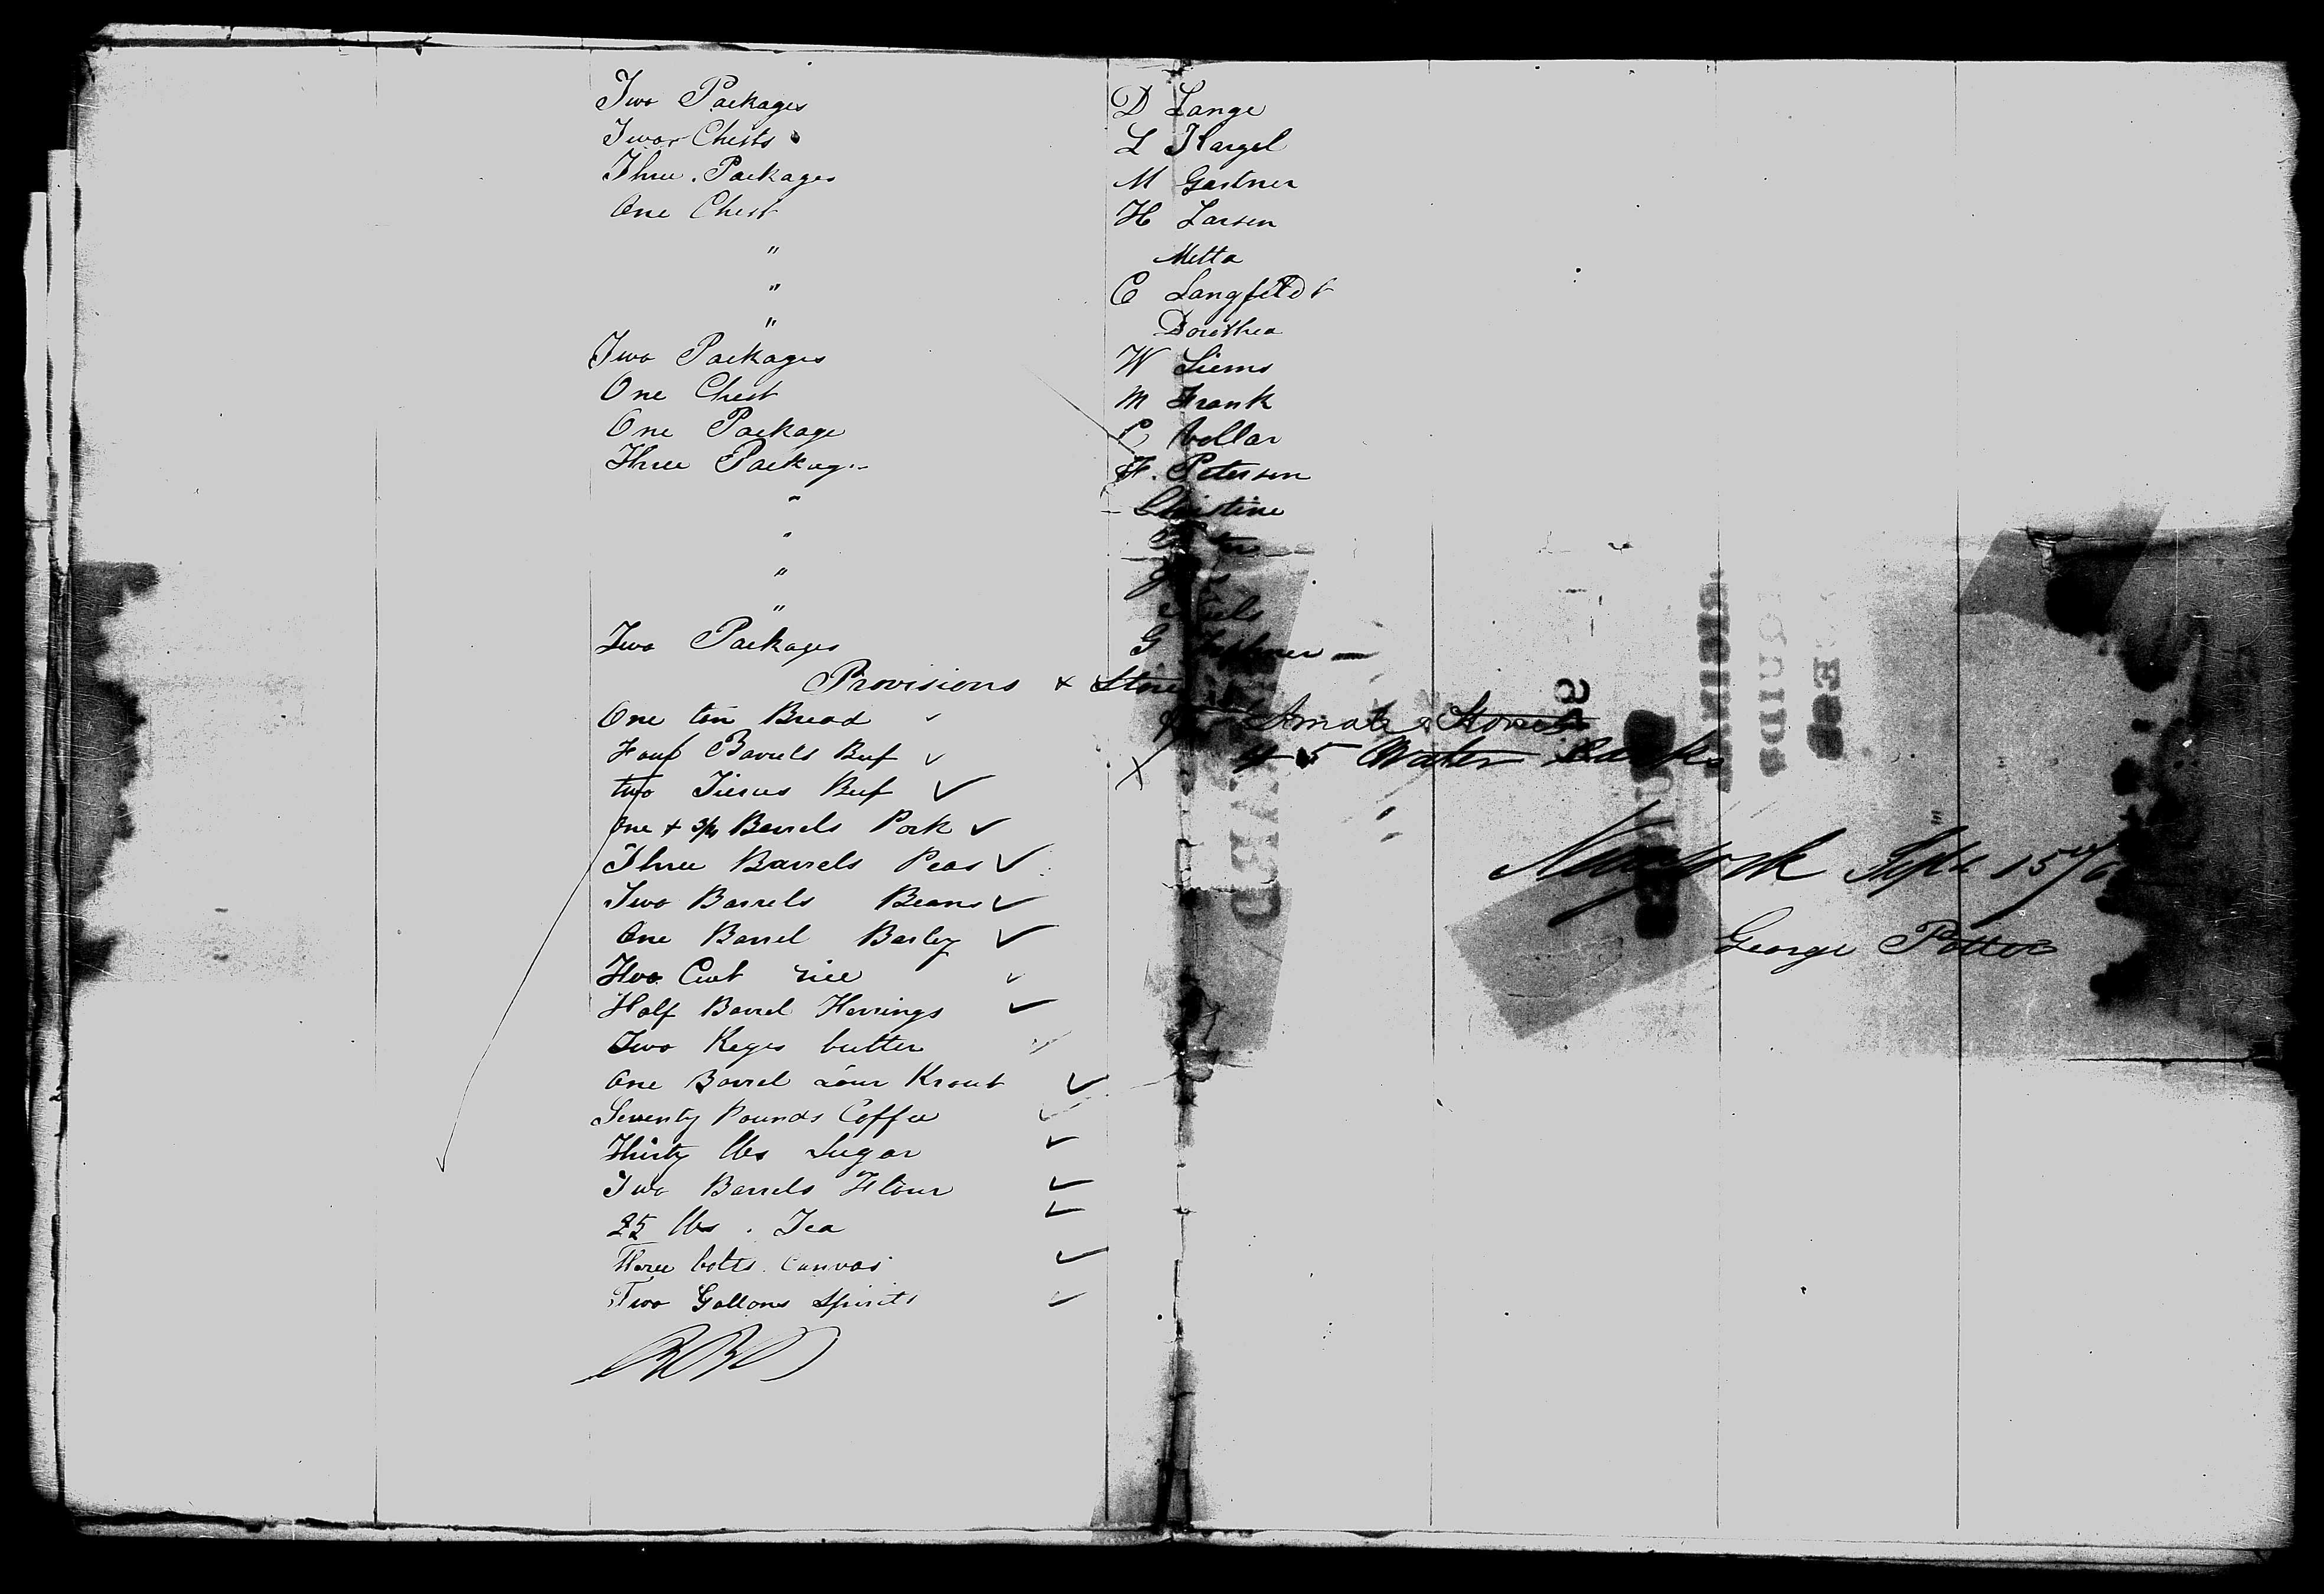 Two Packages D Lange
Two Chests L Kargel
Three Packages M Gastner
One Chest H Larsen
" Metta
" C Langfeldt
" Dorothea
Two Packages W Siems
One Chest M Frank
One Package C Vollar
Three Packages F. Petersen
" Christine
"
"
"
Two Packages G
Provisions & Stores
One ton Bread Small Stores
Four Barrels Beef 5 Water Casks
two Tierces Beef
One & 3/4 Barrels Pork
Three Barrels Peas
Two Barrels Beans
One Barrel Barley
Two Cwt rice
Half Barrel Herrings
Two Kegs butter
One Barrel Sour Krout
Seventy Pounds Coffee
Thirty lbs Sugar
Two Barrels Flour
25 lbs. Tea
Three bolts Canvas
Two Gallons Spirits
New York Sept 15th/6
George Potter